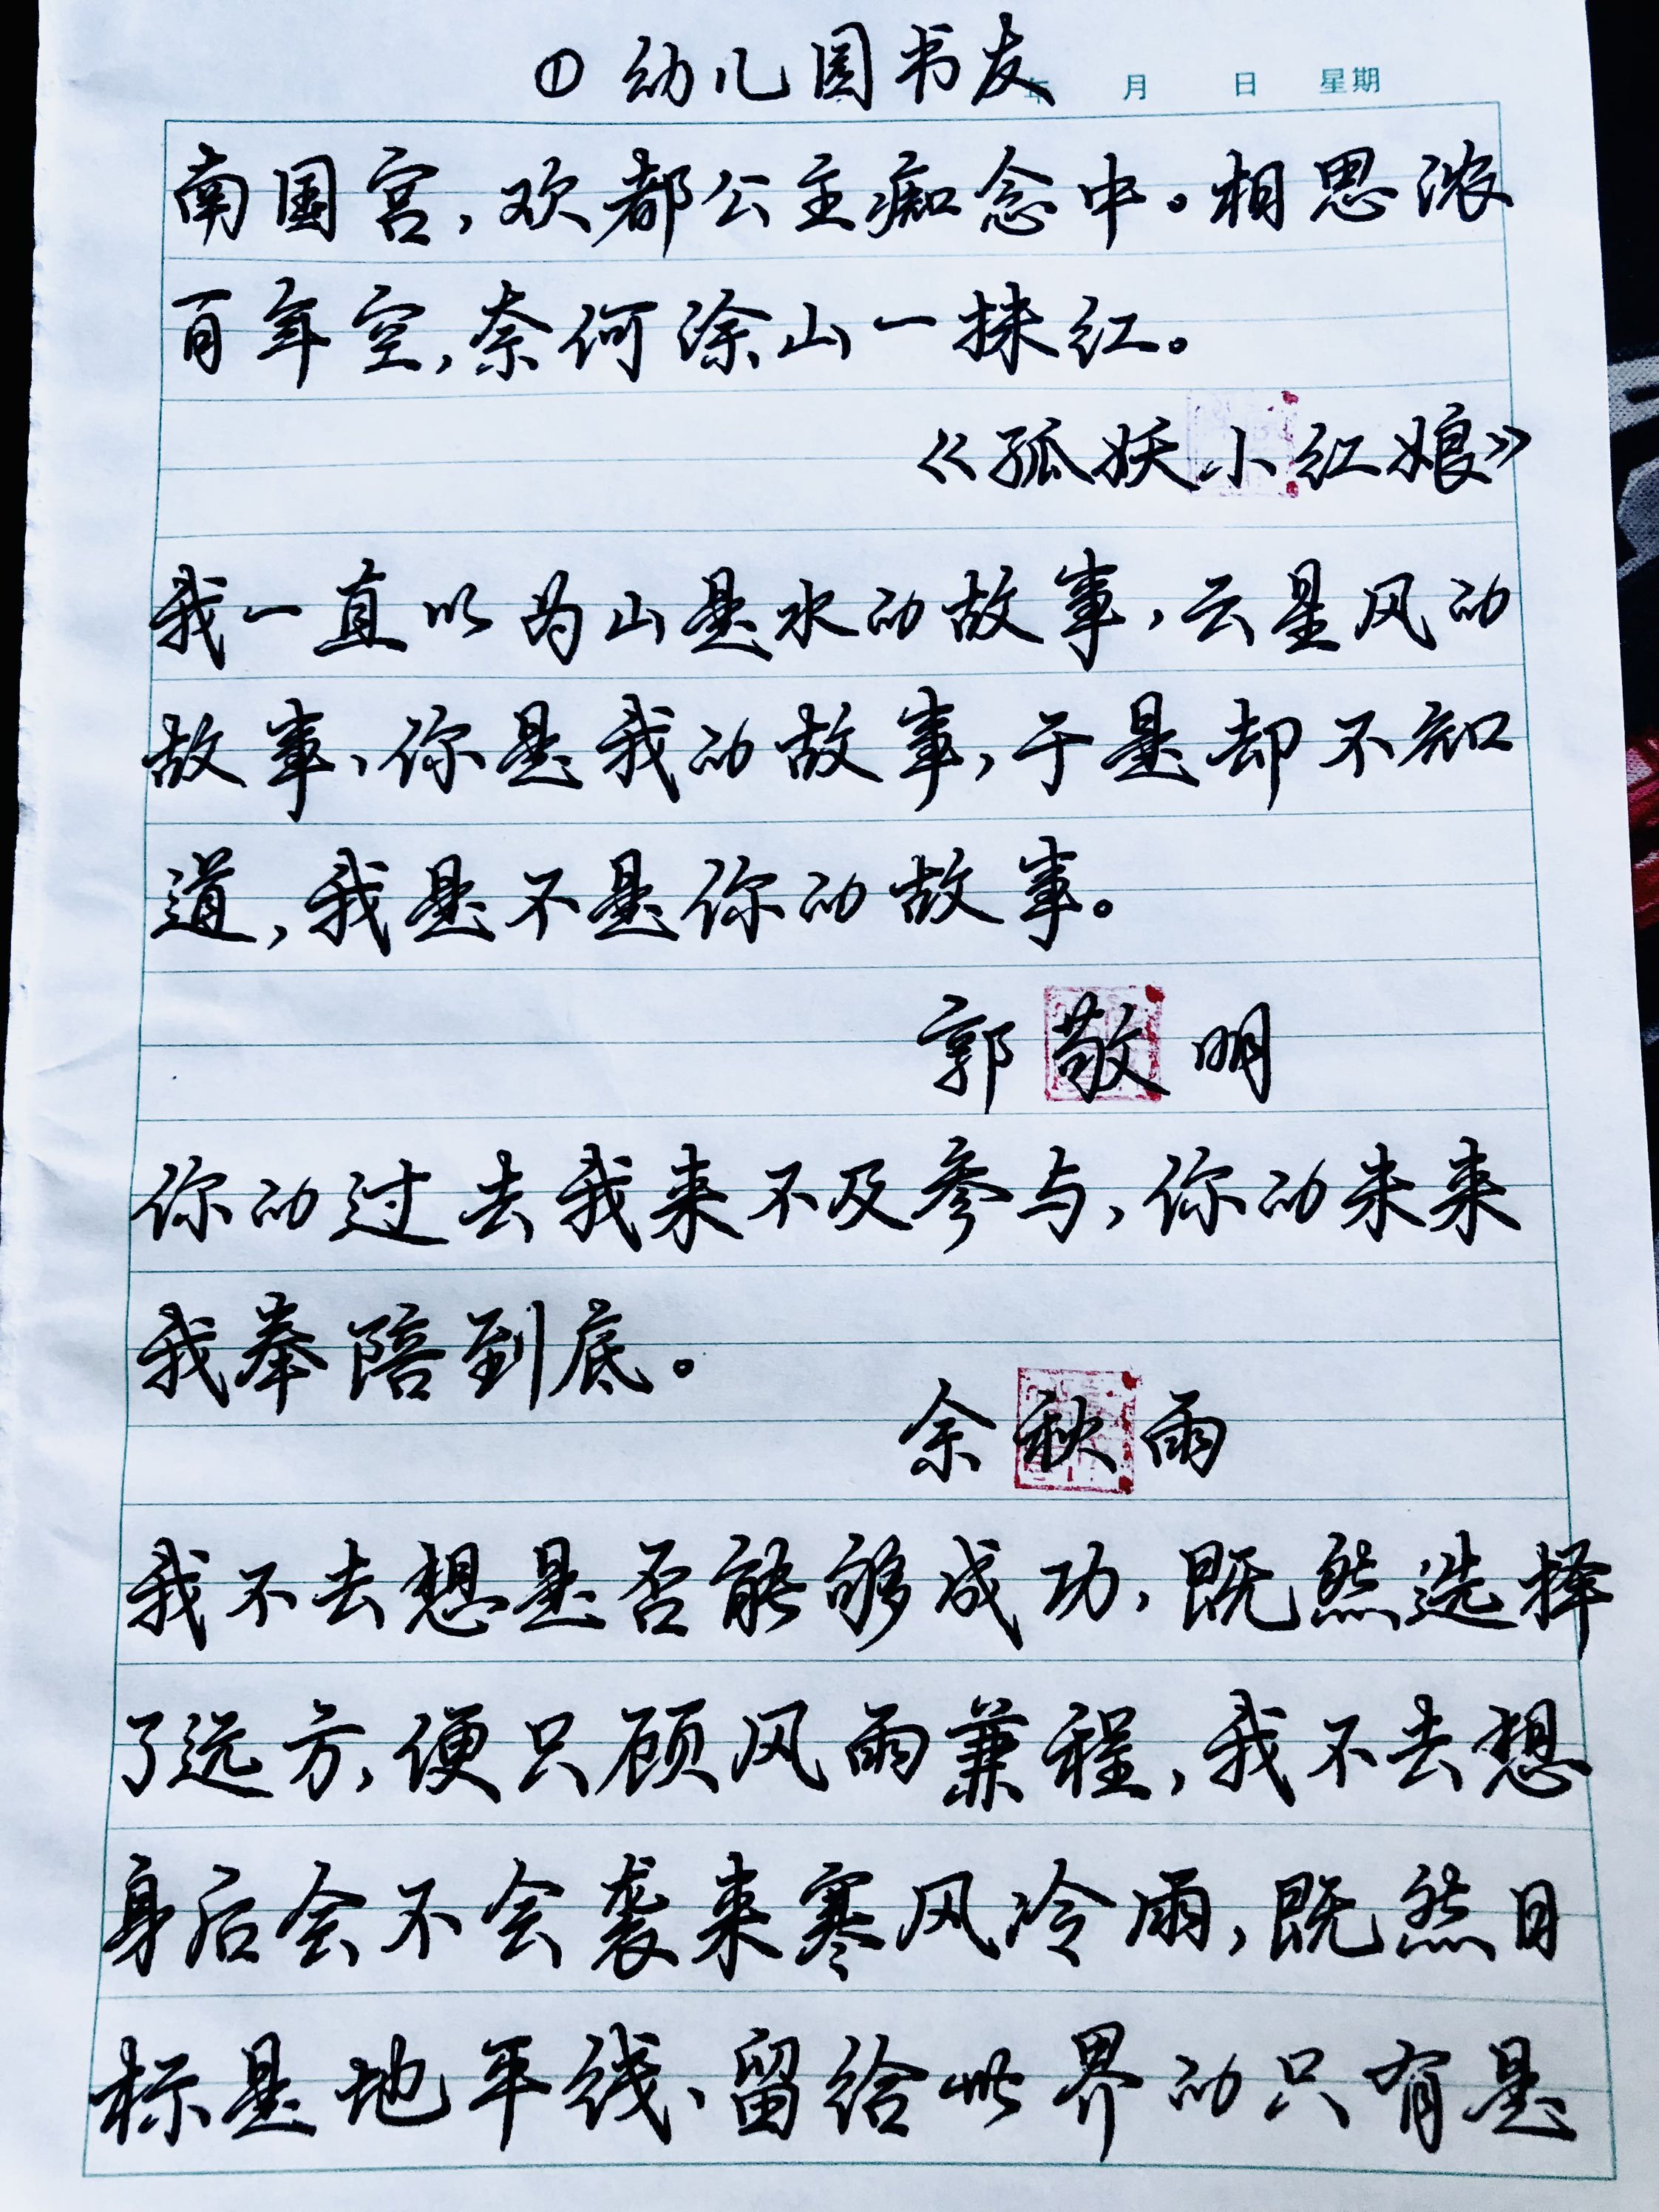 ①幼儿园书友
年 月 日 星期
南国宫,欢都公主痴念中。相思浓
百年空,奈何涂山一抹红。
《狐妖小红娘》
我一直以为山是水的故事,云是风的
故事、你是我的故事,于是却不知
道,我是不是你的故事。
郭敬明
你的过去我来不及参与,你的未来
我奉陪到底。
余秋雨
我不去想是否能够成功,既然选择
了远方,便只顾风雨兼程,我不去想
身后会不会袭来寒风冷雨,既然目
标是地平线、留给世界的只有是